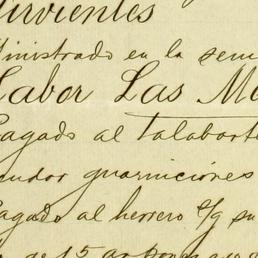 irvientes
inistrado en la sem
Labor Las M
Pagado al talabart
guarniciones
Pagado al herrero s/g su
de 15